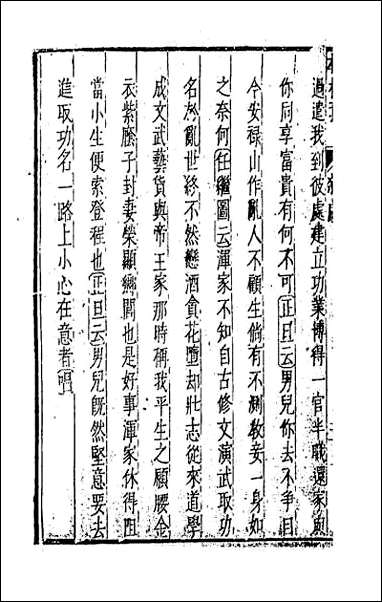 過遣我到彼處建立功業博得一官半職還家與
你同享富貴有何不可正旦云男兒你去不爭目
今安祿山作亂人不顧生倘有不測教妾一身如
之奈何任繼圖云渾家不知自古修文演武取功
名於亂世終不然戀酒貪花墮却壯志從來道學
成文武藝貨與帝王家那時稱我平生之願腰金
衣紫䕃子封妻榮顯鄉閭也是好事渾家休得阻
當小生便索登程也正旦云男兒旣然堅意要去
進取功名一路上小心在意者唱